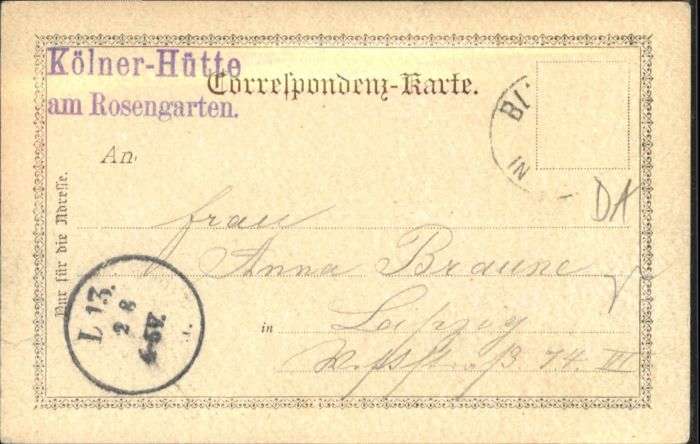 Kölner-Hütte
am Rosengarten.
Correspondenz-Karte.
An
Nur für die Adresse.
Frau
Anna Braune
in Leipzig
74 III
L 13.
2 8
4-5V.
BI
IN
DA